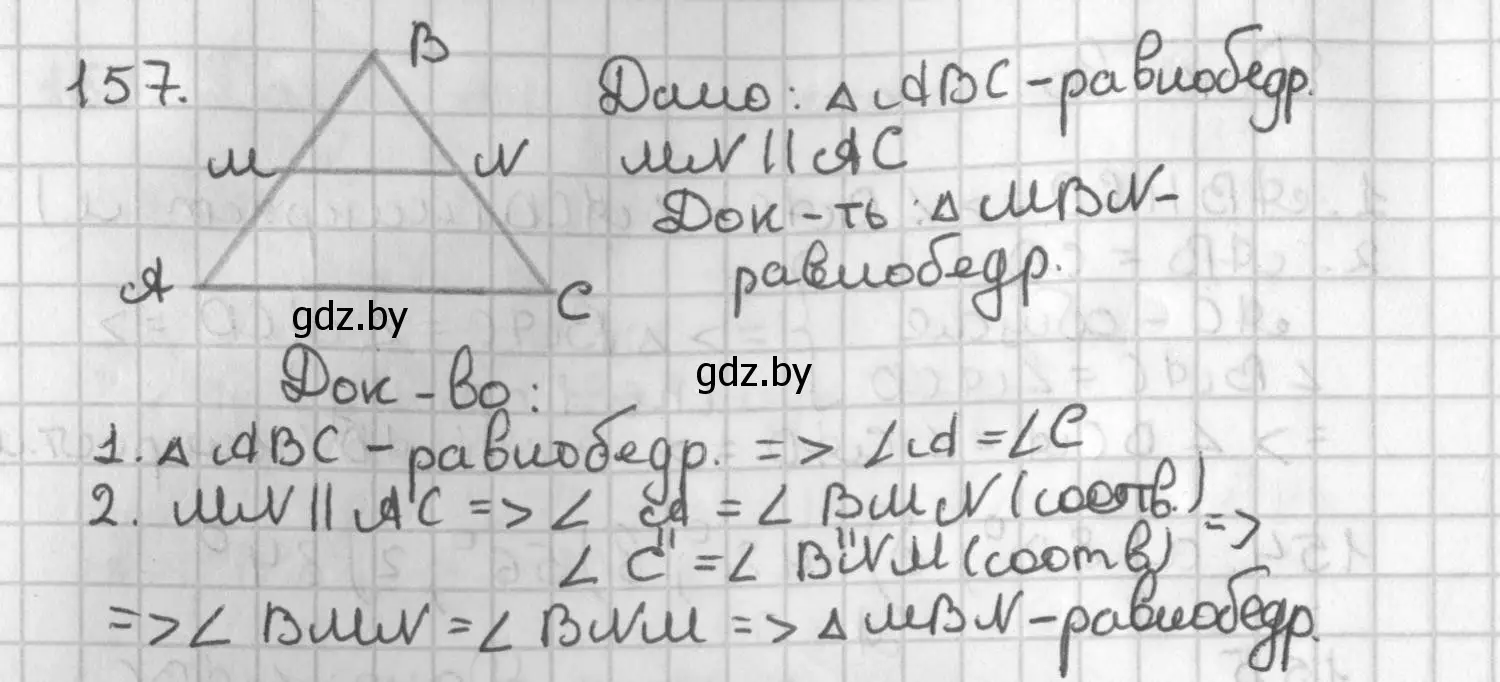 157.
B
Дано: △ABC-равнобедр.
M N
MN || AC
Док-ть: △MBN-
равнобедр.
A C
gdz.by
Док-во:
gdz.by
1. △ABC-равнобедр. => ∠A = ∠C
2. MN || AC => ∠ A = ∠ BMN (соотв.)
" "
∠ C = ∠ BNM (соотв) =>
=> ∠ BMN = ∠ BNM => △MBN-равнобедр.